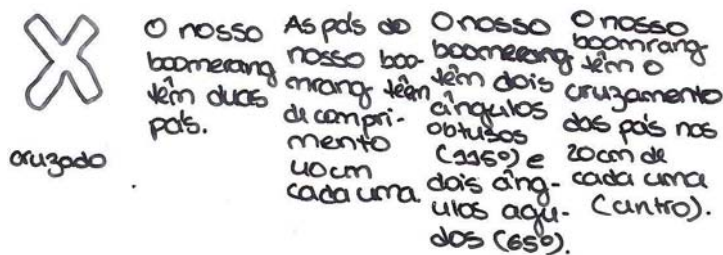 cruzado
O nosso
boomerang
têm duas
pás.
As pás do
nosso boo-
mrang têêm
de compri-
mento
40cm
cada uma.
O nosso
boomerang
têm dois
ângulos
obtusos
(115º) e
dois âng-
ulos agu-
dos (65º).
O nosso
boomrang
têm o
cruzamento
das pás nos
20cm de
cada uma
(centro).